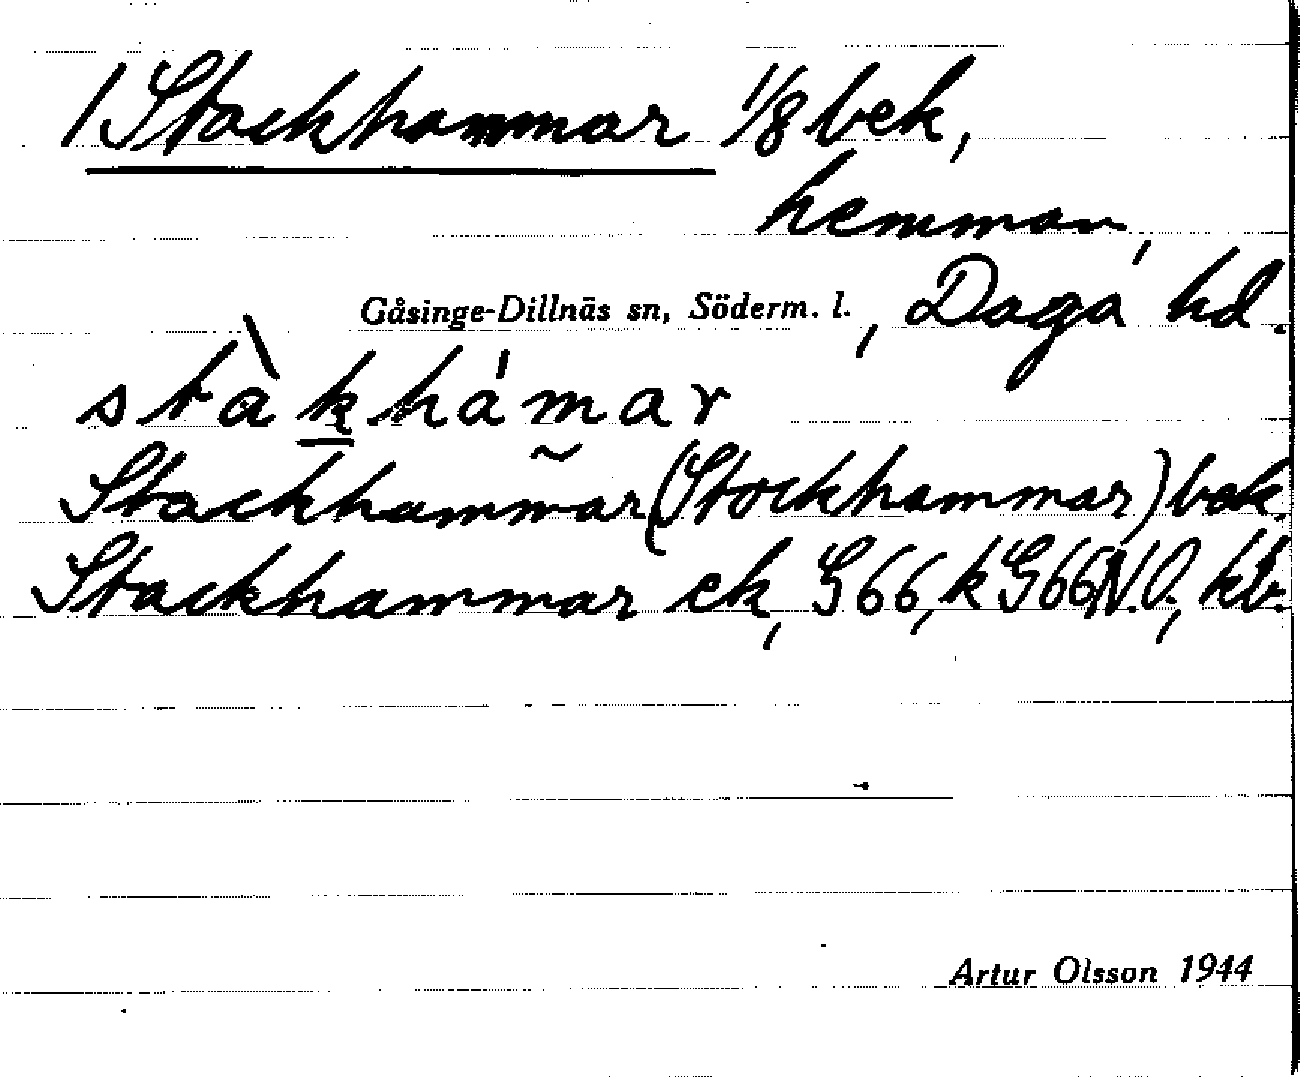 1 Stackhammar 1/8 bek,
hemman,
Gåsinge-Dillnäs sn, Söderm. l., Daga hd.
stàkhámar
Stackhammar (Stockhammar) bek.
Stackhammar ek, G66, k G66 N.O., kb.
Artur Olsson 1944